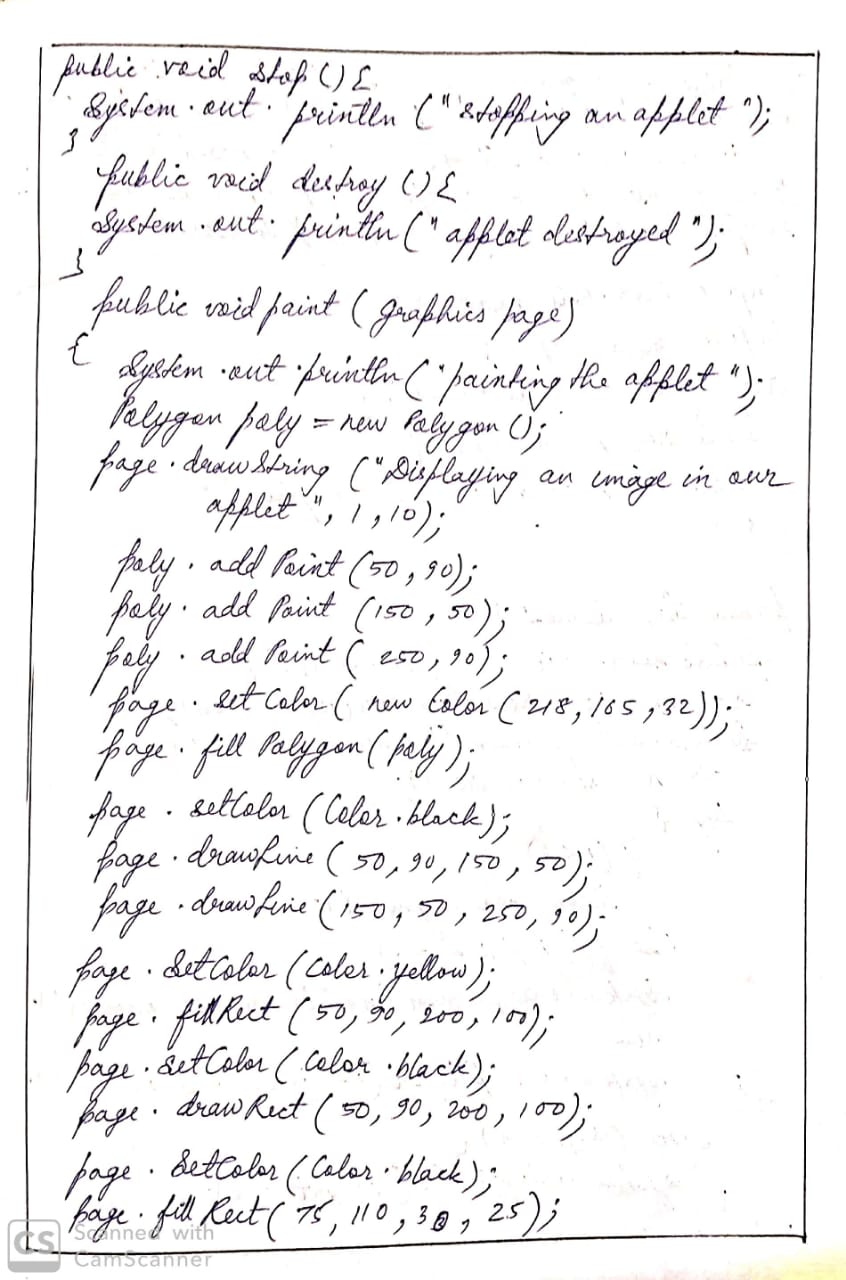 public void stop () {
System.out.println ("stopping an applet ");
}
public void destroy () {
System.out.println (" applet destroyed ");
}
public void paint ( graphics page)
{
System.out.println ("painting the applet ");
Polygon poly = new Polygon ();
page.drawString ("Displaying an image in our
applet ", 1, 10);
poly.add Point (50, 90);
poly.add Point (150, 50);
poly.add Point (250, 90);
page.set Color ( new Color (218, 165, 32));
page.fill Polygon (poly);
page.setColor (Color.black);
page.drawLine (50, 90, 150, 50);
page.draw Line (150, 50, 250, 90);
page.SetColor (Color.yellow);
page.fillRect (50, 90, 200, 100);
page.SetColor (Color.black);
page.draw Rect (50, 90, 200, 100);
page.SetColor (Color.black);
page.fill Rect (75, 110, 30, 25);
CS Scanned with
CamScanner